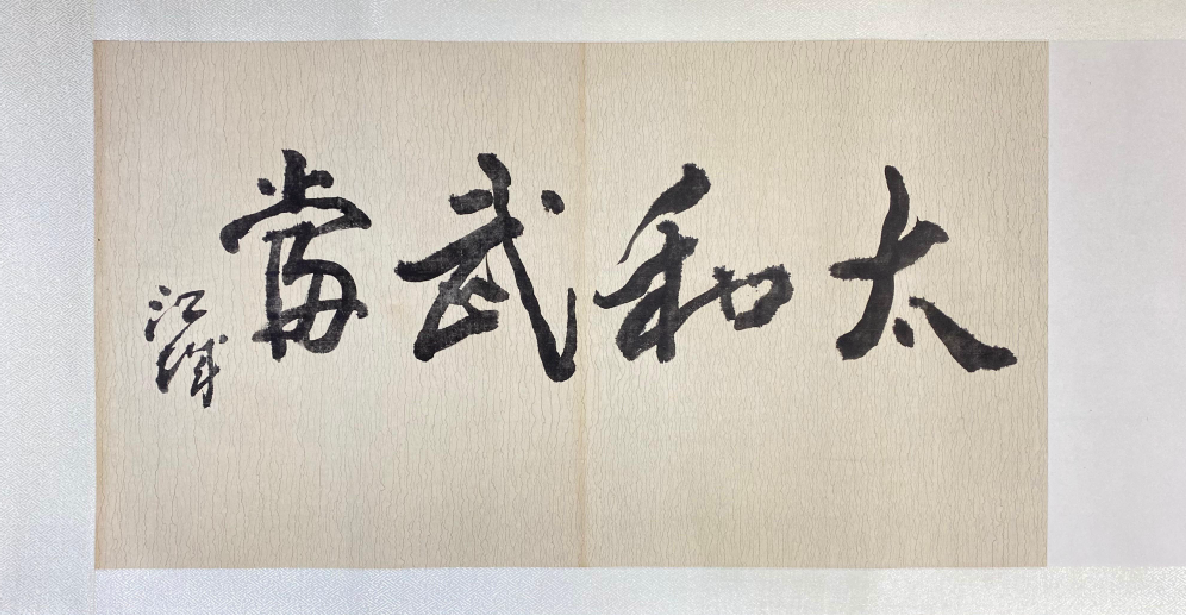 太和武當
江